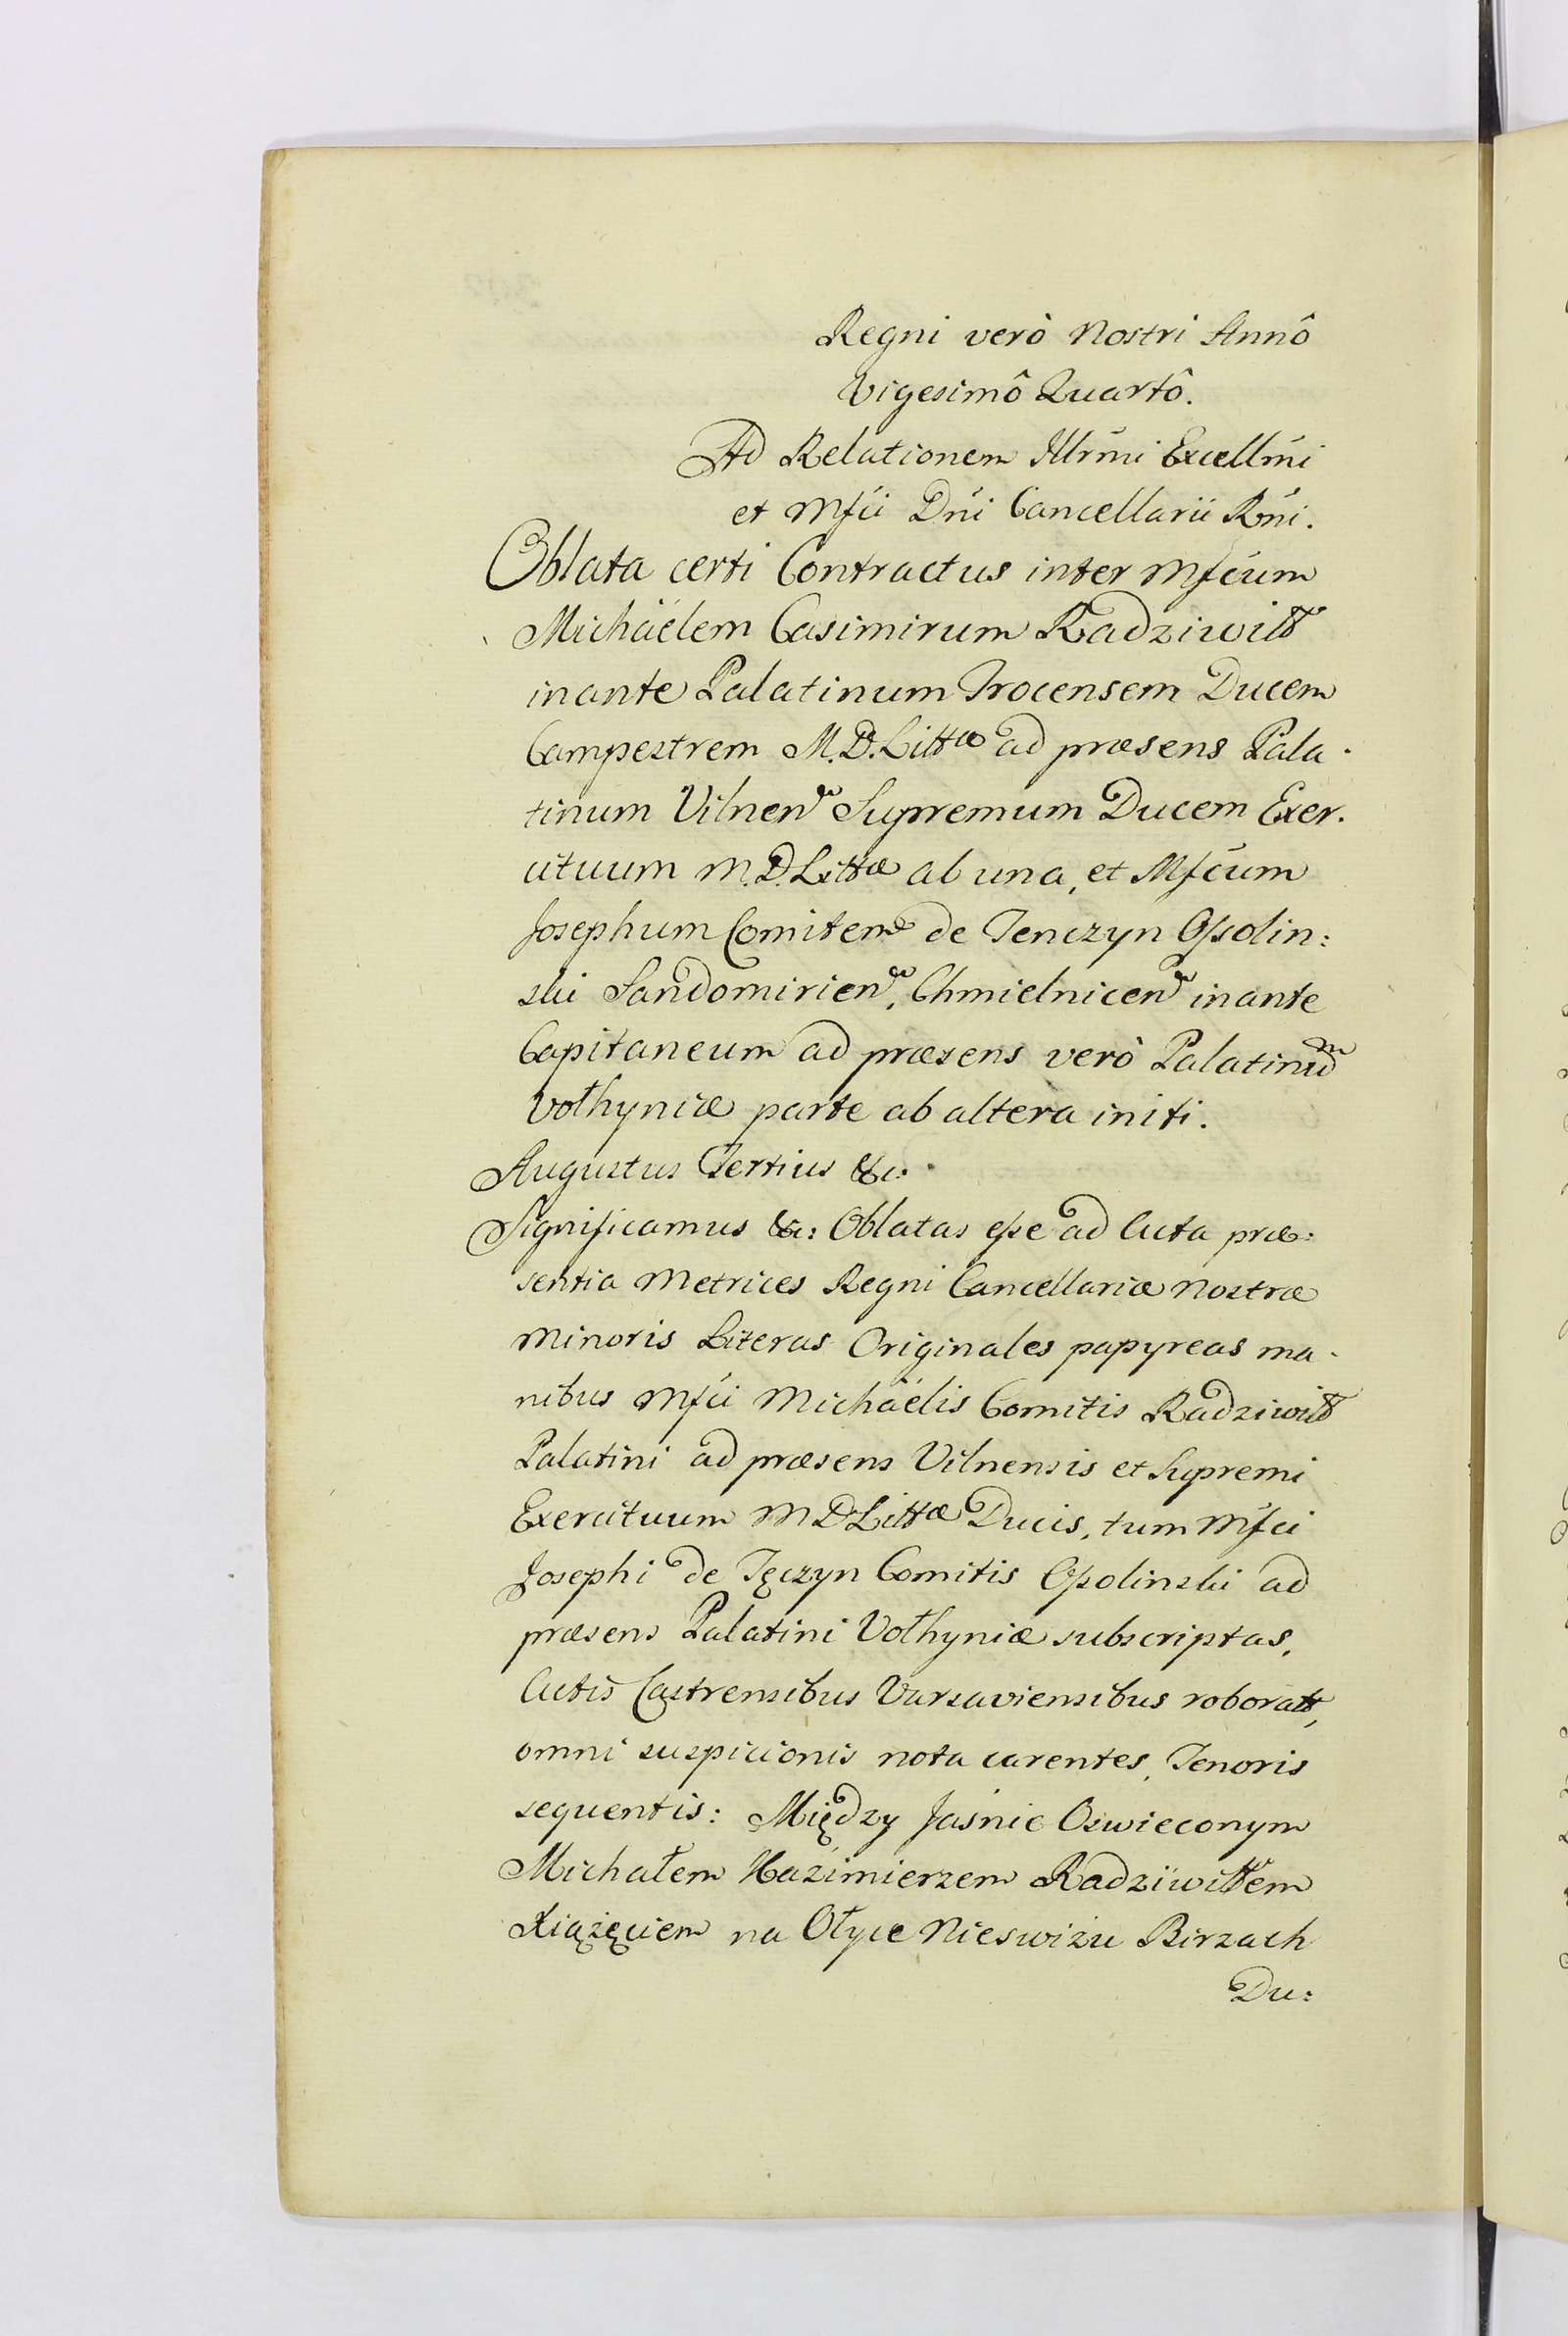 Regni verò Nostri Annô
Vigesimô Quartô.
Ad Relationem Illrmi Excellmi
et Mfci Dni Cancellarii Rni.
Oblata certi Contractus inter Mfcum
Michäelem Casimirum Radziwiłł
inante Palatinum Trocensem Ducem
Campestrem M.D.Littæ ad præsens Pala-
tinum Vilnen Supremum Ducem Exer-
cituum M.D.Littæ ab una, et Mfcum
Josephum Comitem de Tenczyn Ossolin:
ski Sandomirien, Chmielnicen inante
Capitaneum ad præsens verò Palatinum
Vołhyniæ parte ab altera initi.
Augustus Tertius &c:
Significamus &c: Oblatas esse ad Acta præ:
sentia Metrices Regni Cancellariæ Nostræ
Minoris Literas Originales papyreas ma-
nibus Mfci Michäelis Comitis Radziwiłł
Palatini ad præsens Vilnensis et Supremi
Exercituum M D Littæ Ducis, tum Mfci
Josephi de Tęczyn Comitis Ossolinski ad
præsens Palatini Vołhyniæ subscriptas,
Actis Castrensibus Varsaviensibus roboratt,
omni suspicionis nota carentes, Tenoris
sequentis: Między Jaśnie Oswieconym
Michałem Kazimierzem Radziwiłłem
Xiążęciem na Ołyce Nieswiżu Birzach
Du: